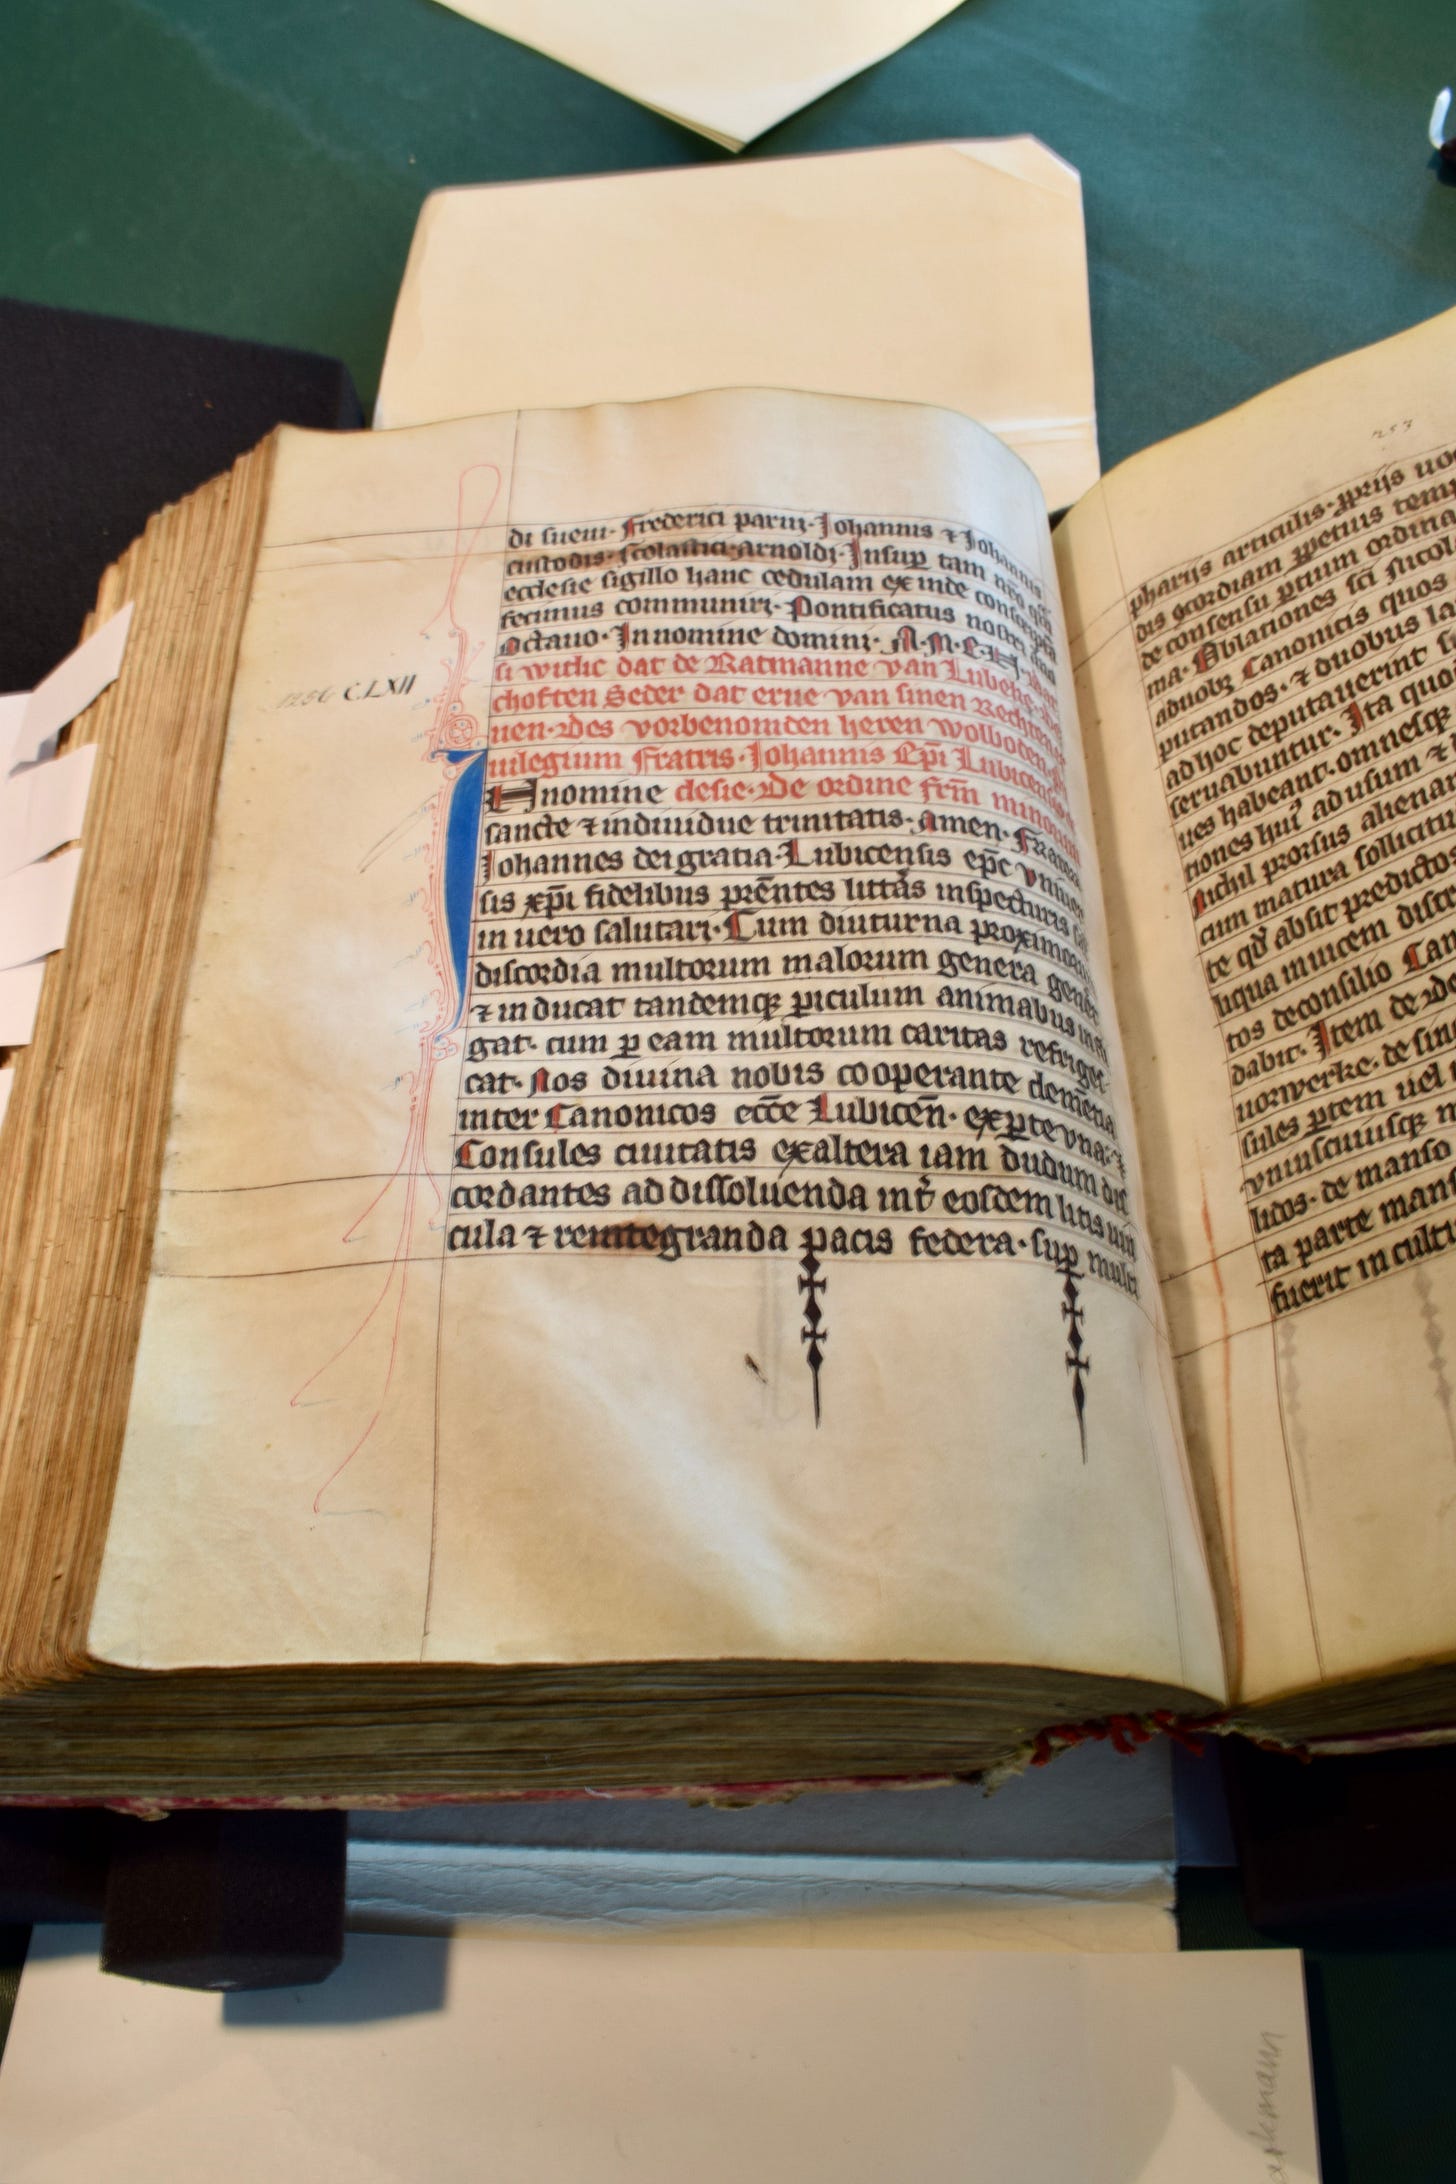 di sueni· Frederici parui· Johannis ⁊ Johannis
custodis· scolastici arnoldi· Insuꝑ tam
ecclesie sigillo hanc cedulam ex inde conscriptā
fecimus communiri· Pontificatus nostri
octauo· In nomine domini· A·M·E·N·
si witlic dat de Ratmanne van Lubeke
choften Seder dat erue van sinen Rechten
nen· Des vorbenomden heren wolboden·
uilegium Fratris· Johannis Ep̄i Lubicen̄
In nomine clesie· De ordine frm̄ minorum
sancte ⁊ indiuidue trinitatis· Amen· Frater
Johannes dei gratia· Lubicensis ep̄c vniuer
sis xp̄i fidelibus pr̄entes litt̄as inspecturis
in uero salutari· Cum diuturna proximorum
discordia multorum malorum genera gen̄et
⁊ inducat tandemqꝫ ꝑiculum animabus
gat· cum ꝑ eam multorum caritas refriges
cat· Nos diuina nobis cooperante clemēcia
inter Canonicos ecc̄e Lubicen̄· ex ꝑte vna· ⁊
Consules ciuitatis ex altera iam dudum dis
cordantes ad dissoluenda int̄ eosdem litis uin
cula ⁊ reintegranda pacis federa· suꝑ multi
1256 C.LXII
253
pharijs articulis·
dis ꝯcordiam ꝑpetuis
de consensu ꝑtium ordina
ma· Oblationes sc̄i Nicol
aduobꝫ Canonicis quos
putandos· ⁊ duobus la
ad hoc deputauerint
seruabuntur· Ita quo
ues habeant· omnesqꝫ
tiones hui᷒ ad usum ⁊
Nichil prorsus aliena
cum matura sollicitu
te qd̄ absit predictos
liqua inuicem disco
tos de consilio Can
dabit· Item de
uorwerke· de sin
sules ꝑtem uel
vniuscuiusqꝫ
lidos· de manso
ta parte mans
fuerit in cultu